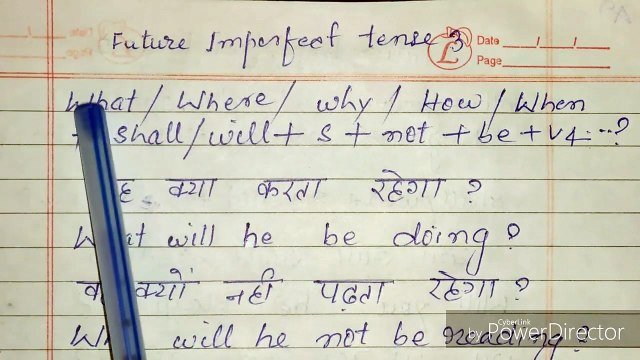 Future Imperfect tense 3
Date / /
Page
What / Where / why / How / When
+ shall/will + S + not + be + v4...?
क्या करता रहेगा ?
What will he be doing ?
क्यों नहीं पढ़ता रहेगा ?
will he not be reading ?
by CyberLink PowerDirector